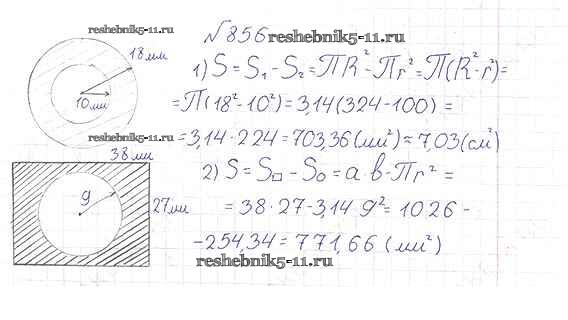 №856 reshebnik5-11.ru
reshebnik5-11.ru
18мм
10мм
1) S = S₁ - S₂ = ПR² - Пr² = П(R² - r²) =
= П(18² - 10²) = 3,14(324 - 100) =
= 3,14 · 224 = 703,36 (мм²) ≈ 7,03 (см²)
reshebnik5-11.ru
38мм
27мм
9
2) S = S□ - S○ = a · b - Пr² =
= 38 · 27 - 3,14 · 9² = 1026 -
- 254,34 = 771,66 (мм²)
reshebnik5-11.ru